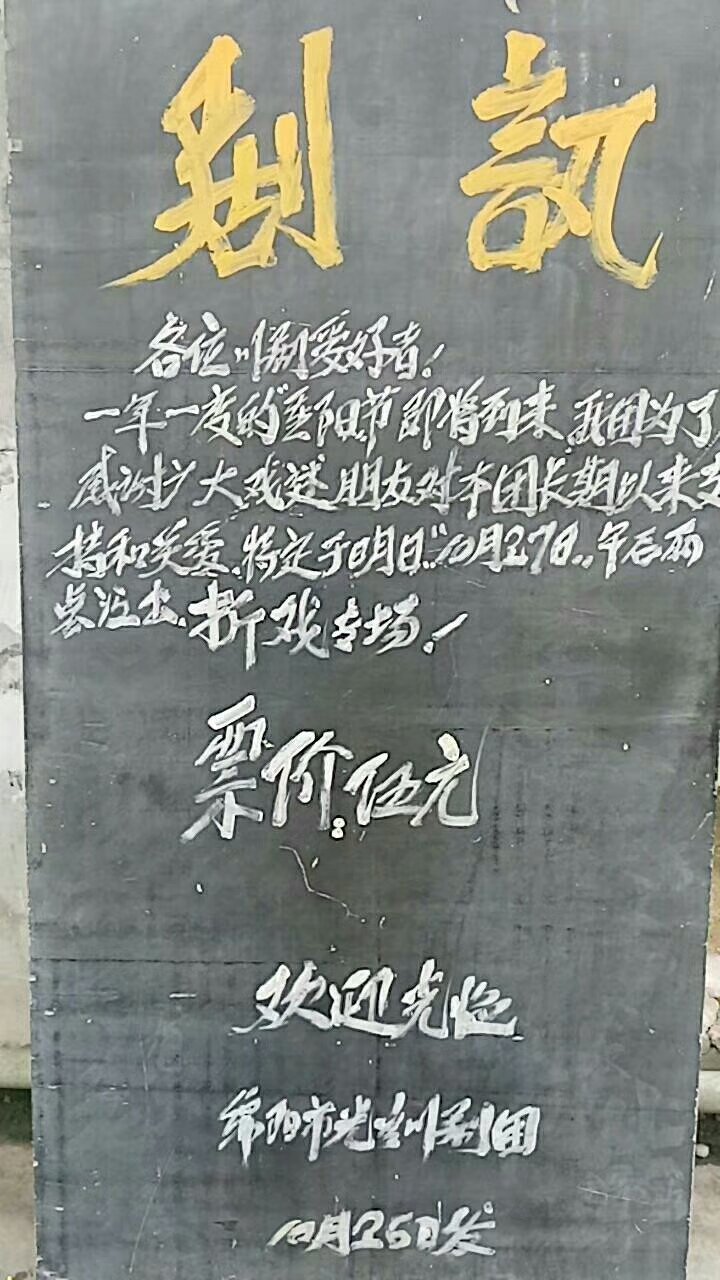 剧訊
各位川剧爱好者！
一年一度的"重阳节即将到来，我团为了
感谢广大戏迷朋友对本团长期以来支
持和关爱，特定于明日"10月27日"，午后两
点演出，折戏专场！
票价：伍元
欢迎光临
绵阳市光 川剧团
10月26日发